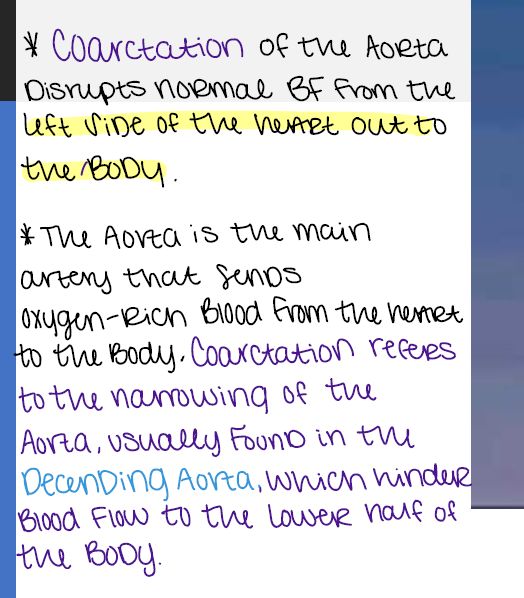 * Coarctation of the Aorta
Disrupts normal BF from the
left side of the heart out to
the Body.
* The Aorta is the main
artery that sends
oxygen-Rich Blood from the heart
to the Body. Coarctation refers
to the narrowing of the
Aorta, usually found in the
Decending Aorta, which hinder
Blood Flow to the Lower half of
the Body.